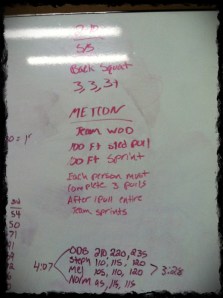 5/3
Back Squat
3, 3, 3+
METCON
Team WOD
100 FT sled pull
20 FT Sprint
Each person must
complete 3 pulls
After 1 pull entire
Team sprints
54
50
71
41
4:07
210, 220, 235
Steph 110, 115, 120
Mel 105, 110, 120
Norm 95, 115, 115
3:28